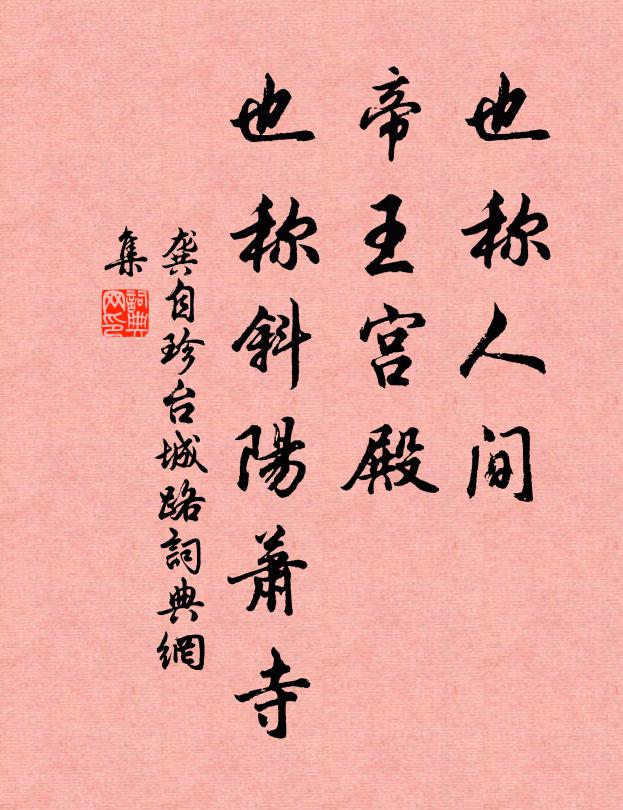 也称人间
帝王宫殿
也称斜陽萧寺
龚自珍台城路詞典網
集
詞典网印